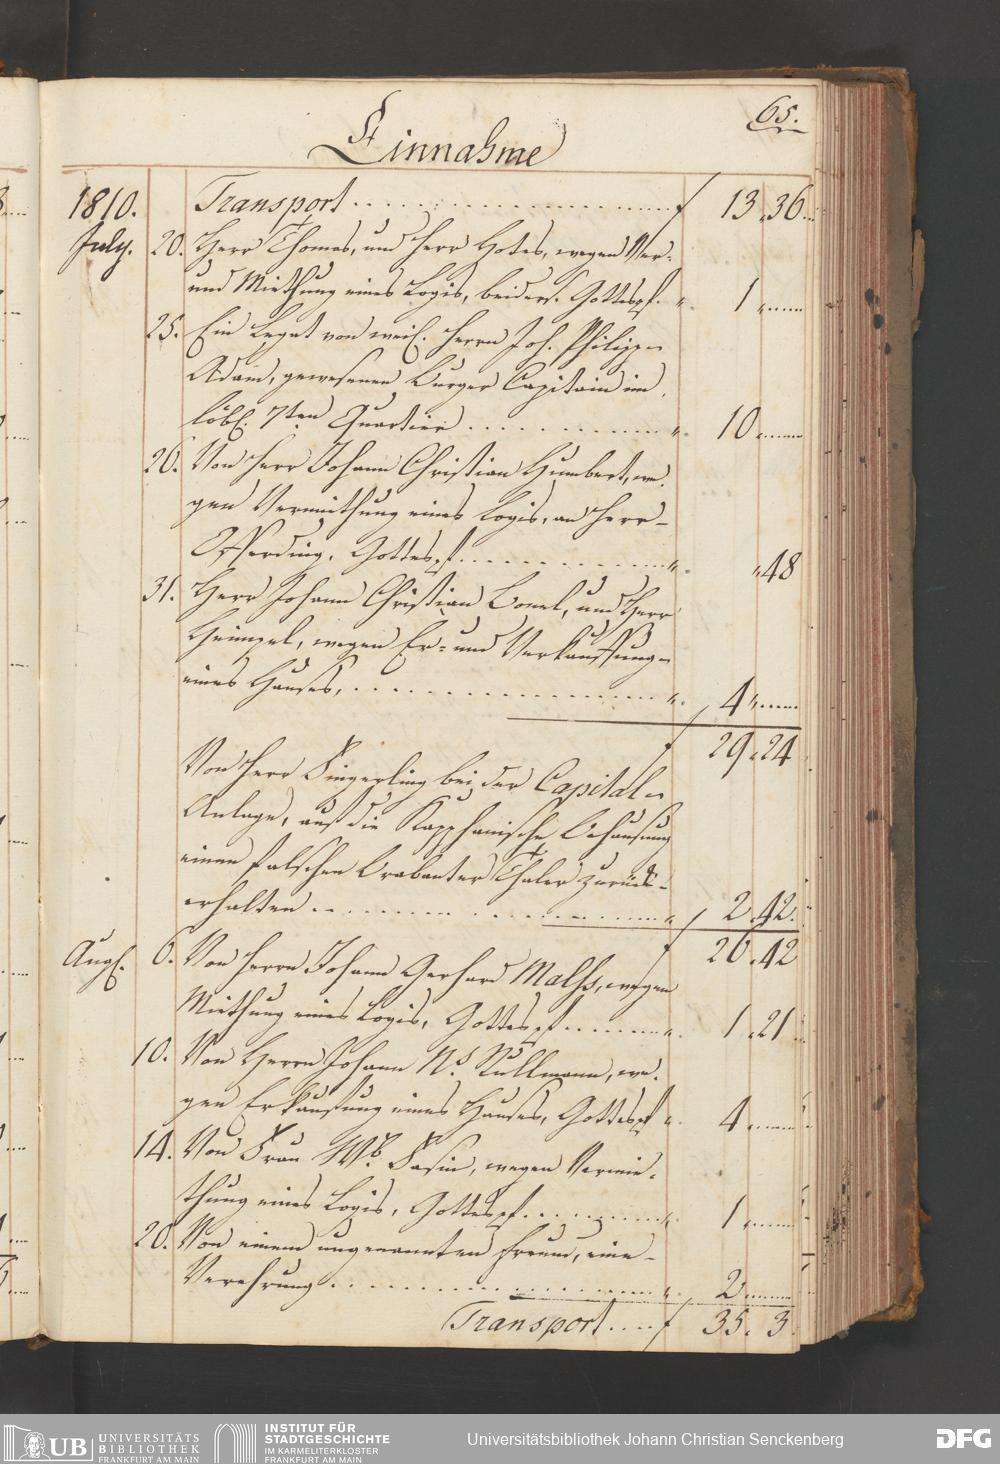 65.
Einnahme
1810. Transport . . . . . . f 13.36.
July. 20. Herr Thomas, und Herr Hotes, wegen Ver-
und Miethung eines Logis, beiders. Gottespf. " 1 "
25. Ein Legat von weil. Herrn Joh. Philipp
Adam, gewesenen Burger Capitain im
löbl. 7ten Quartier . . . . . . " 10
26. Von Herr Johann Christian Humbert, we-
gen Vermiethung eines Logis, an Herr
Gottespf. . . . . . " " 48
31. Herr Johann Christian Bonel, und Herr
Heimpel, wegen Er- und Verkauffung
eines Hauses, . . . . . . " 4 "
f 29.24
Von Herr Fingerling bei der Capital-
Anlage, auf die Behausung
einen falschen Brabanter Thaler zurück-
erhalten . . . . . . " f 2.42.
f 26.42
Augt. 6. Von Herrn Johann Gerhard Malss, wegen
Miethung eines Logis, Gottespf . . . . . " 1.21
10. Von Herrn Johann Ns. Kullmann, we-
gen Erkaufung eines Hauses, Gottespf " 4
14. Von Frau Wb. Fasin, wegen Vermie-
thung eines Logis, Gottespf . . . . . " 1
20. Von einem ungenannten Freund, eine
Verehrung . . . . . . " 2
Transport . . . . f 35. 3.
UB UNIVERSITÄTS
BIBLIOTHEK
FRANKFURT AM MAIN
INSTITUT FÜR
STADTGESCHICHTE
IM KARMELITERKLOSTER
FRANKFURT AM MAIN
Universitätsbibliothek Johann Christian Senckenberg
DFG